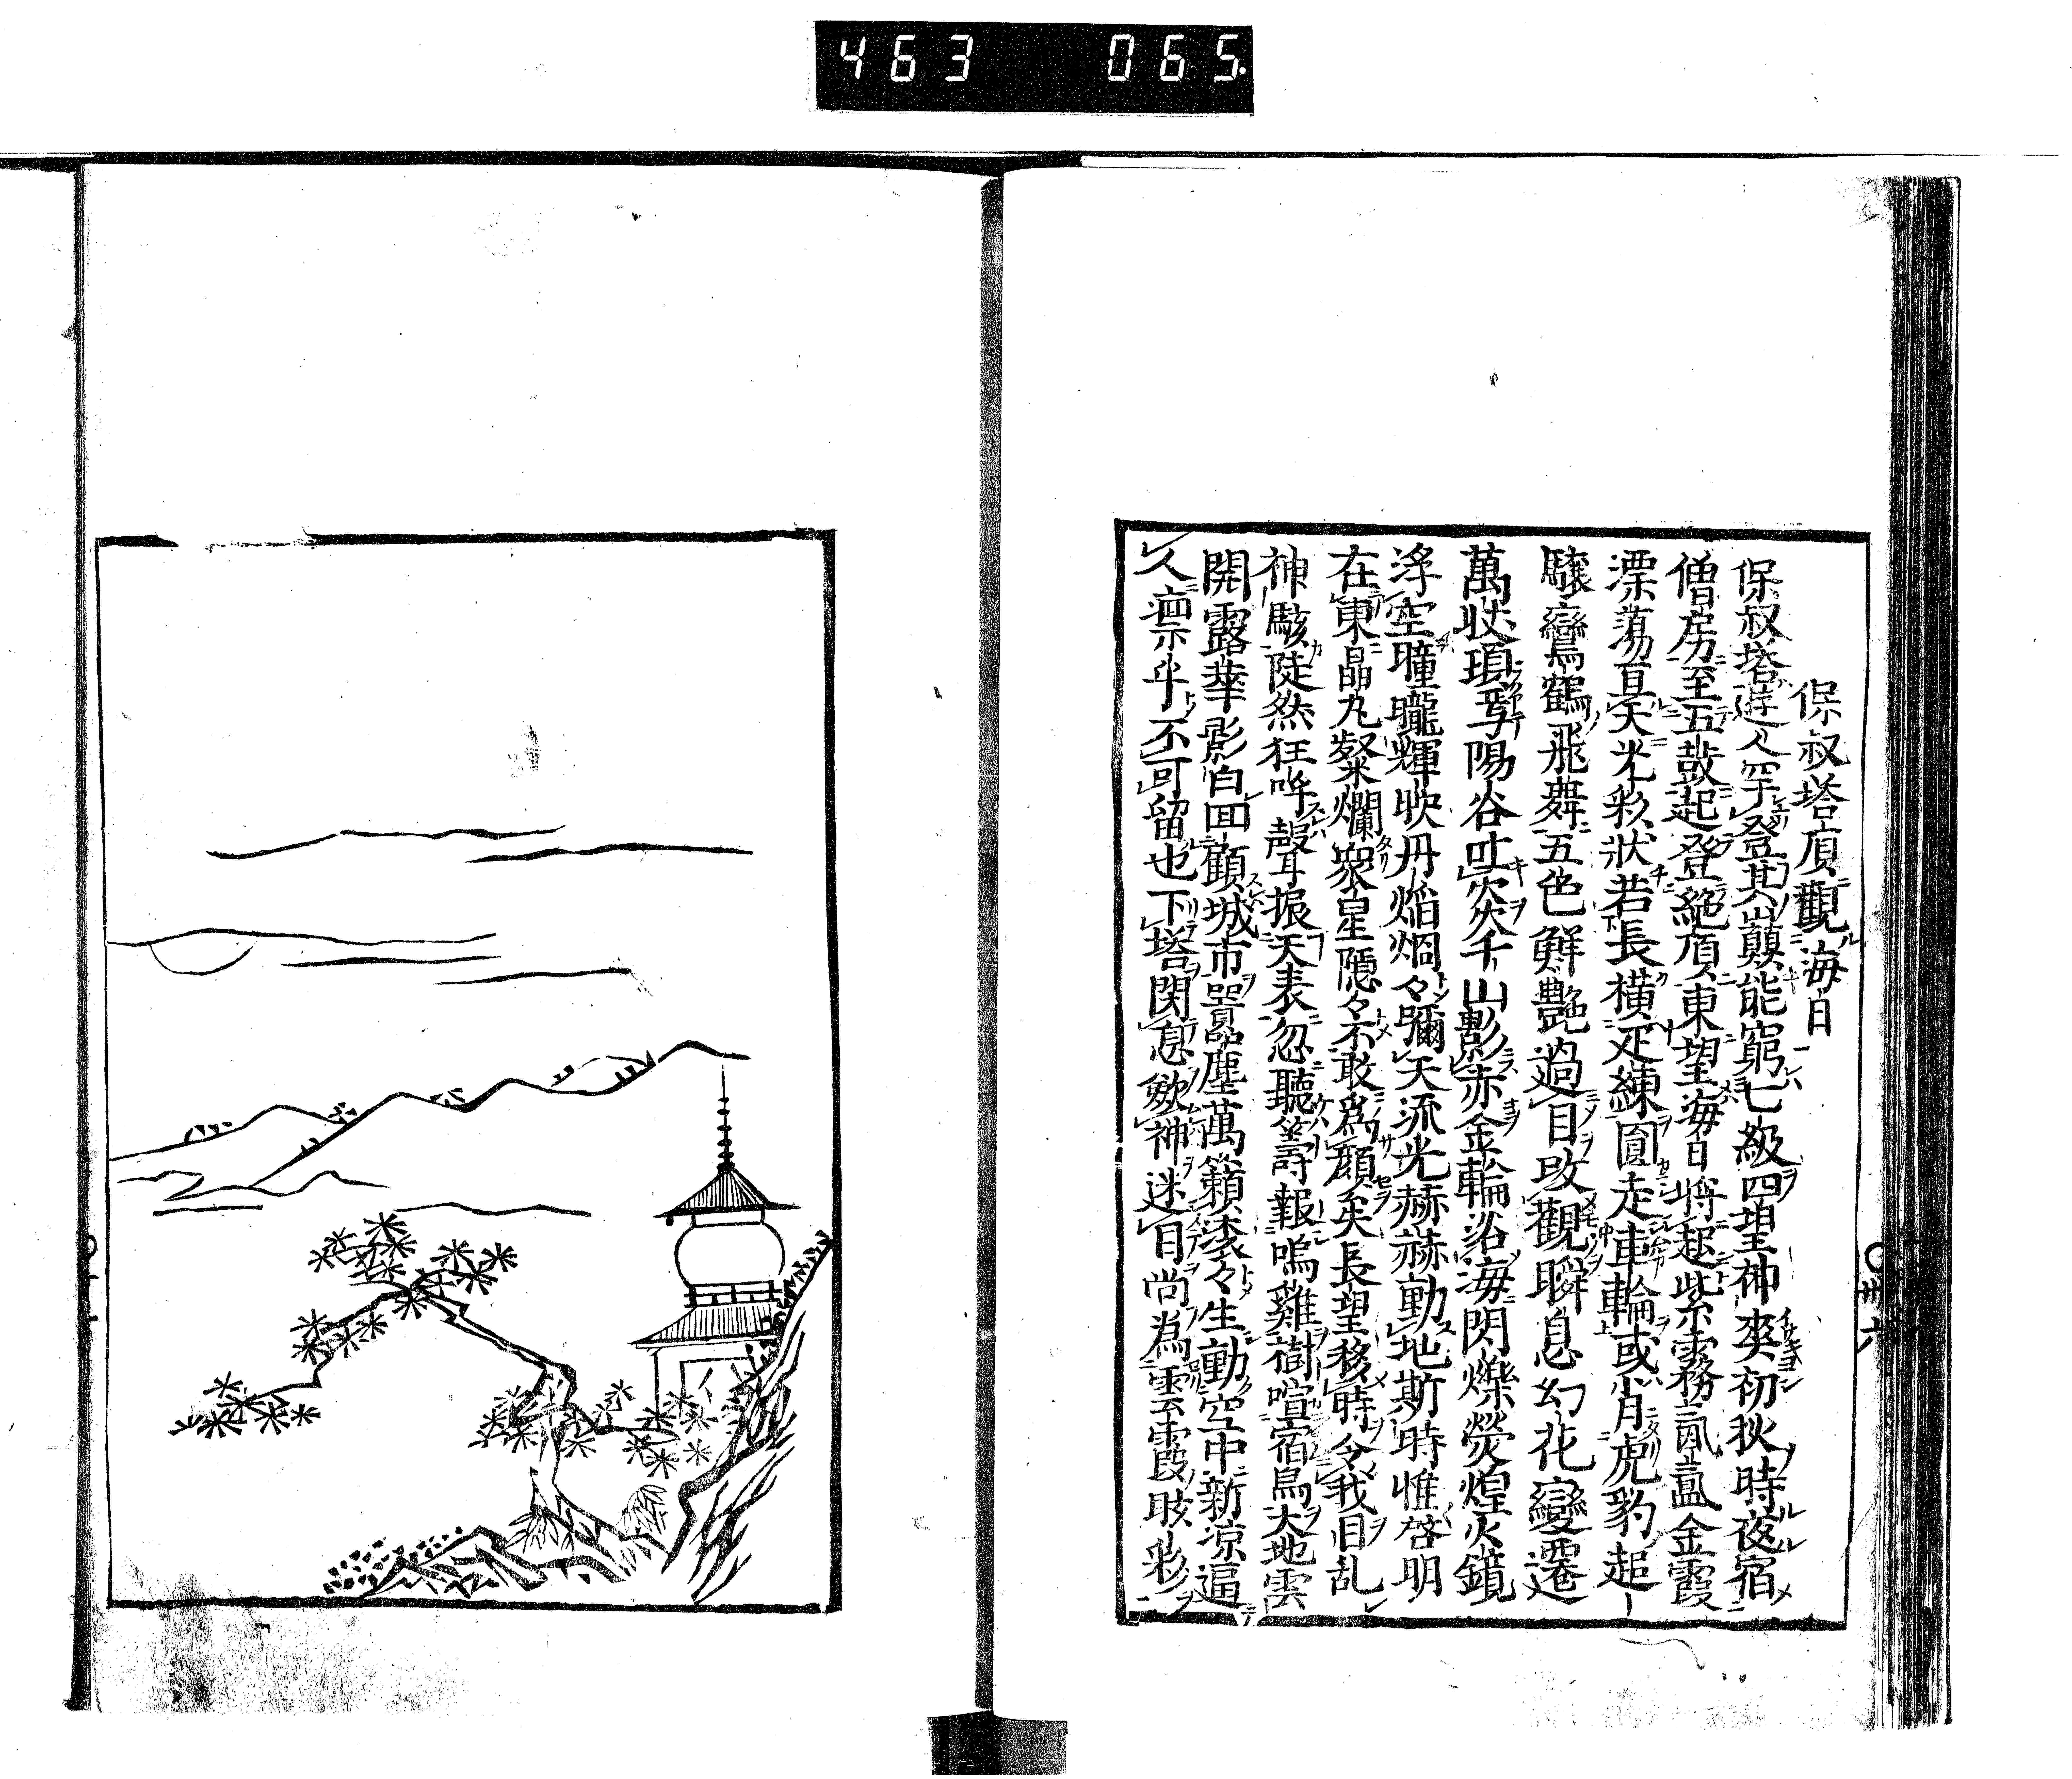 463 065
保叔塔頂觀海日
保叔塔遊人罕登其巓能窮七級四望神爽初秋時夜宿
僧房至五鼓起登絶頂東望海日將起紫霧氤氳金霞
漂蕩亘天光彩状若長横疋練圓走車輪或肖虎豹起
驤鸞鶴飛舞五色鮮艶過目改觀瞬息幻花變遷
萬状頃焉陽谷吐炎千山影赤金輪浴海閃爍熒煌火鏡
浮空瞳曨輝映丹焔炯々彌天流光赫赫動地斯時惟啓明
在東晶丸粲爛衆星隱々不敢爲顔矣長望移時令我目乱
神駭陡然狂呼聲振天表忽聽籌報鳴雞樹喧宿鳥大地雲
開露華影白回顧城市囂塵萬籟滚々生動空中新凉逼
久禀乎不可留也下塔閉息歛神迷目尚為雲霞眩彩
〇卅六